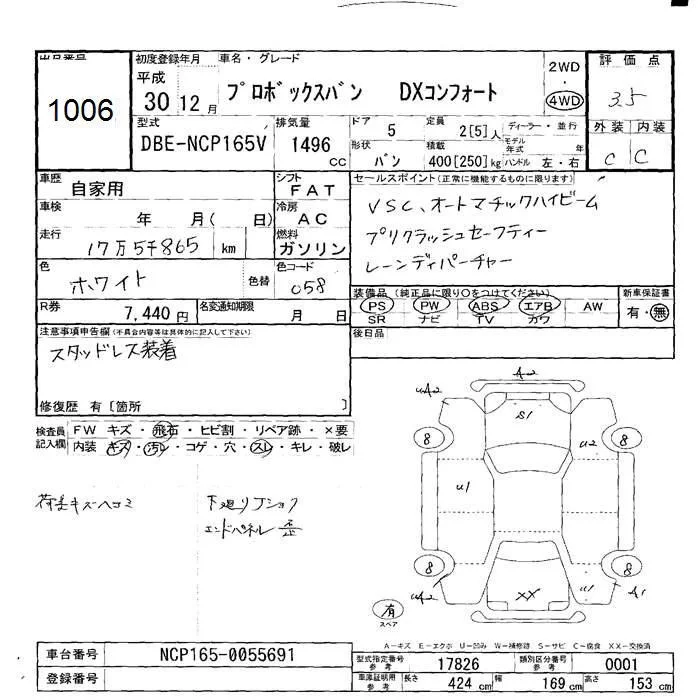 出品番号
1006
初度登録年月 車名・グレード
平成
30 12月 プロボックスバン DXコンフォート
2WD
・
4WD
評価点
3.5
外装 内装
C C
型式 排気量 ドア 5 定員 2[5]人 ディーラー・並行
DBE-NCP165V 1496 CC 形状 バン 積載 400[250]kg モデル年式 年
ハンドル 左・右
車歴 自家用 シフト FAT
セールスポイント(正常に機能するものに限ります)
車検 年 月( 日) 冷房 AC
VSC、オートマチックハイビーム
走行 17万5千865 km 燃料 ガソリン
プリクラッシュセーフティー
色 ホワイト 色替 色コード 058
レーンディパーチャー
R券 7,440円 名変通知期限 月 日
装備品(純正品に限り○をつけてください) 新車保証書
PS PW ABS エアB AW 有・無
SR ナビ TV カワ
後日品
注意事項申告欄(不具合内容等は具体的に記入して下さい)
スタッドレス装着
修復歴 有[箇所 ]
検査員記入欄 FW キズ・飛石・ヒビ割・リペア跡・×要
内装 キズ・汚れ・コゲ・穴・スレ・キレ・破レ
荷室キズヘコミ 下廻りフショク
エンドパネル歪
A2
UA2 S1
8 U2 8
U1
8 8
UA2 XX U1 A1
有
スペア
A-キズ E-エクボ U-凹み W-補修跡 S-サビ C-腐食 XX-交換済
車台番号 NCP165-0055691
登録番号
型式指定番号参考 17826 類別区分番号参考 0001
車庫証明用参考 長さ 424 cm 幅 169 cm 高さ 153 cm